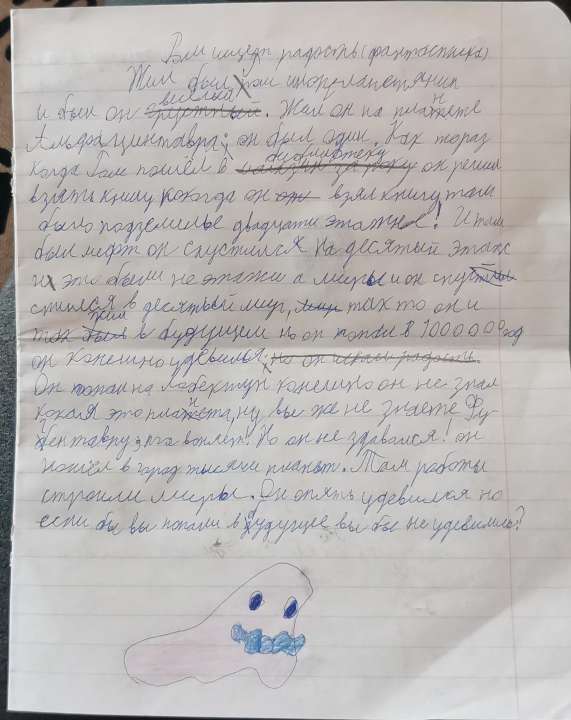 Гэм ищет радость (фантастика)
Жил был Гэм инопланетянин
великан
и был он грустный. Жил он на планете
Альфацинтавра; он был один. Как то раз
библиотеку
когда Гэм пошёл в он решил
взять книгу когда он он взял книгу там
было подземелье двадцати этажей! И там
был лифт он спустился на десятый этаж
и это были не этажи а миры и он
стился в десятый мир, так то он и
жил
так был в будущем но он попал в 1000000 год
он конешно удевился, но он искал радость.
Он попал на конешно он не знал
какая это планета, ну вы же не знаете Фу-
Но он не здавался! он
пошёл в город тысячи планет. Там работы
строили миры. Он опять удевился но
если бы вы попали в будущее вы бы не удевились?